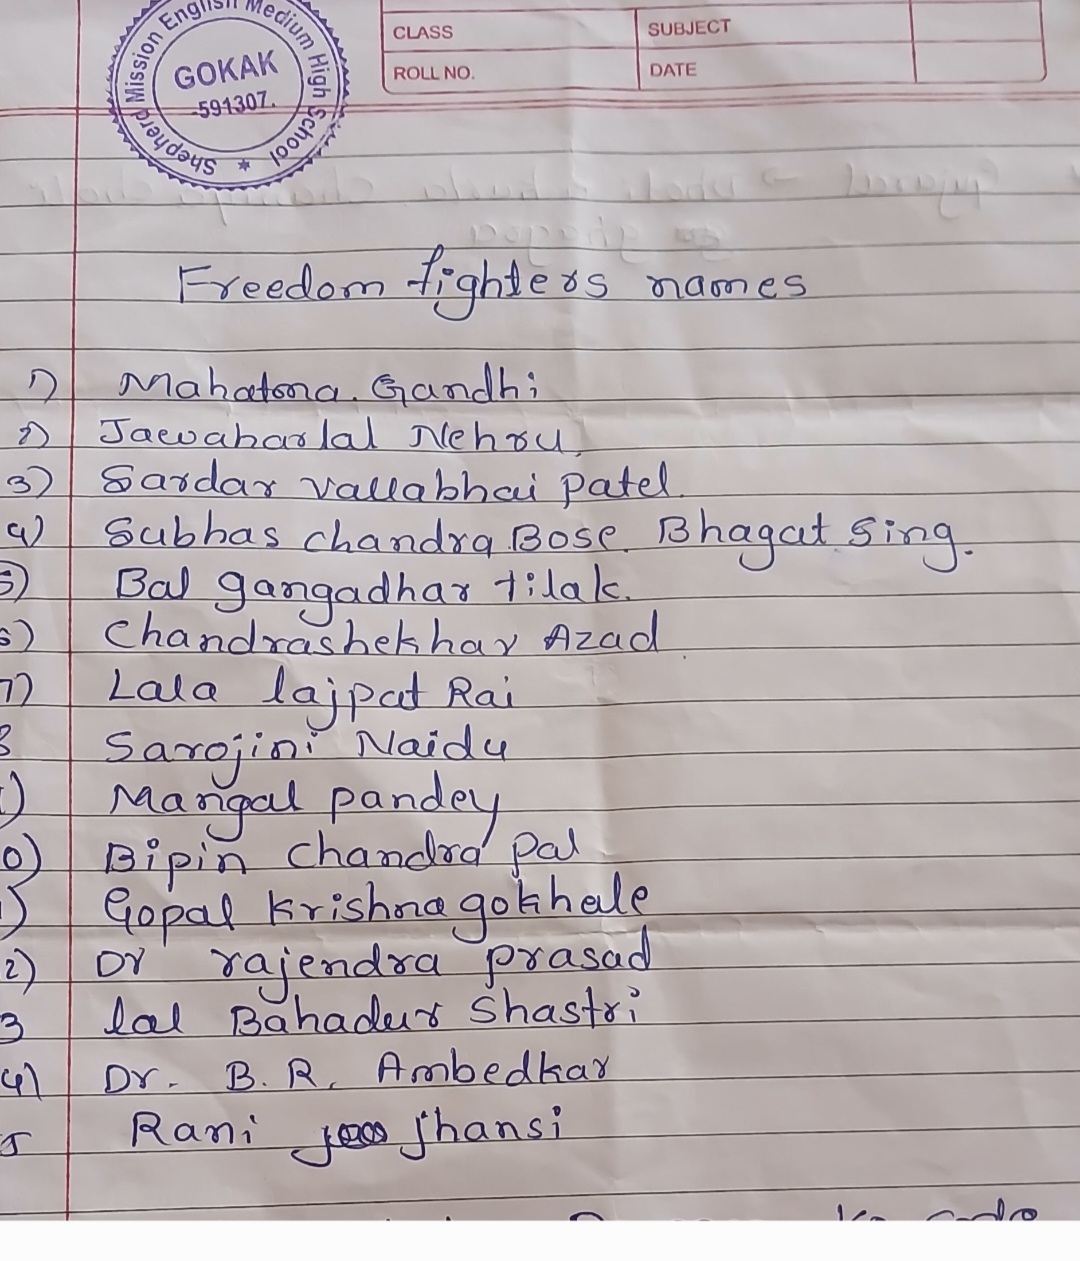 Shepherd Mission English Medium High School *
GOKAK
-591307.
CLASS
SUBJECT
ROLL NO.
DATE
Freedom fighters names
1) Mahatma. Gandhi
2) Jawaharlal Nehru,
3) Sardar vallabhai patel.
4) Subhas chandra Bose. Bhagat Sing.
5) Bal gangadhar tilak.
6) Chandrashekhar Azad.
7) Lala lajpat Rai
8 Sarojini Naidu
) Mangal pandey
0) Bipin chandra pal
) Gopal Krishna gokhale
2) Dr rajendra prasad
3 lal Bahadur Shastri
4) Dr. B. R. Ambedkar
5 Rani jhansi